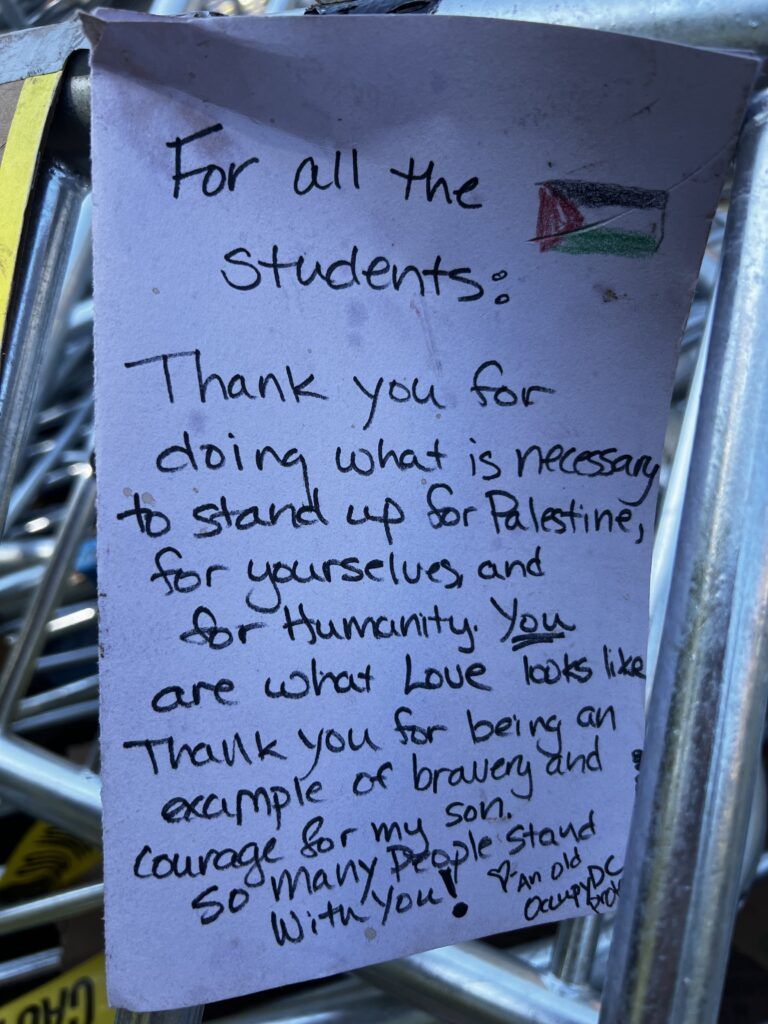 For all the
students:
Thank you for
doing what is necessary
to stand up for Palestine,
for yourselves, and
for Humanity. You
are what Love looks like
Thank you for being an
example of bravery and
courage for my son.
So many People stand
With you!
♡-An Old
OccupyDC
CAU